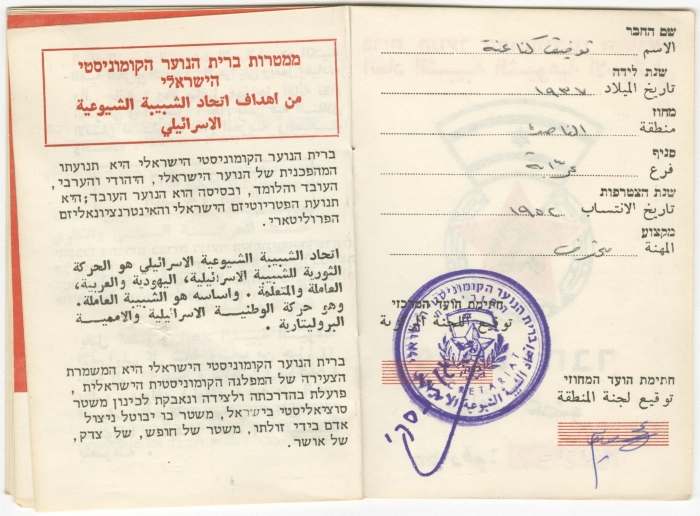 ממטרות ברית הנוער הקומוניסטי
הישראלי
من اهداف اتحاد الشبيبة الشيوعية
الاسرائيلي
ברית הנוער הקומוניסטי הישראלי היא תנועתו
המהפכנית של הנוער הישראלי, היהודי והערבי,
העובד והלומד, ובסיסה הוא הנוער העובד; היא
תנועת הפטריוטיזם הישראלי והאינטרנציונאליזם
הפרוליטארי.
اتحاد الشبيبة الشيوعية الاسرائيلي هو الحركة
الثورية للشبيبة الاسرائيلية، اليهودية والعربية،
العاملة والمتعلمة . واساسه هو الشبيبة العاملة.
وهو حركة الوطنية الاسرائيلية والاممية
البروليتارية .
ברית הנוער הקומוניסטי הישראלי היא המשמרת
הצעירה של המפלגה הקומוניסטית הישראלית,
פועלת בהדרכתה ולצידה ונאבקת לכינון משטר
סוציאליסטי בישראל, משטר בו יבוטל ניצול
אדם בידי זולתו, משטר של חופש, של צדק,
של אושר.
שם החבר
الاسم توفيق كناعنة
שנת לידה
تاريخ الميلاد ١٩٣٧
מחוז
منطقة الناصرة
סניף
فرع عرابة
שנת הצטרפות
تاريخ الانتساب ١٩٥٢
מקצוע
المهنة محترف
חתימת הועד המרכזי
توقيع اللجنة المركزية
ברית הנוער הקומוניסטי הישראלי
اتحاد الشبيبة الشيوعية الاسرائيلي
SECRETARIAT
חתימת הועד המחוזי
توقيع لجنة المنطقة